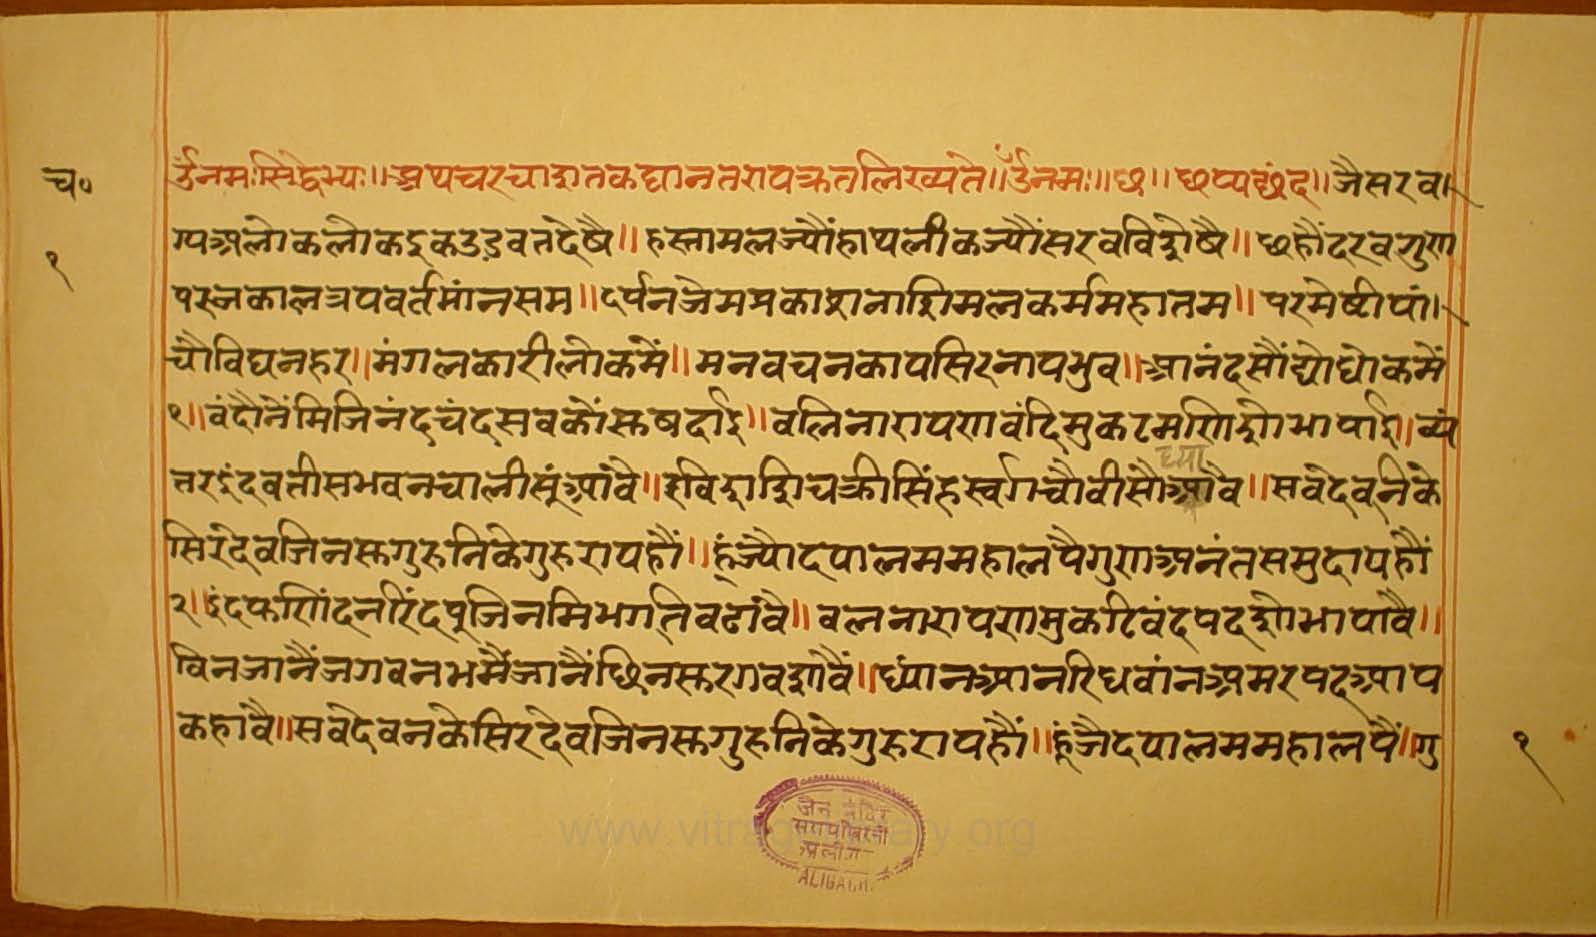 च०
१
ॐनमःसिद्धेभ्यः॥अथचरचाशतकद्यानतरायकृतलिख्यते॥ॐनमः॥छ॥ छप्पयछंद॥जैसरव।
ग्यअलोकलोकइकउडवतदेषै॥हस्तामलज्यौंहाथलीकज्यौंसरवविशेषै॥छहौंदरवगुण
परजकालत्रयवर्तमांनसम॥दर्पनजेमप्रकाशनाशिमलकर्ममहातम॥परमेष्टीपां।
चौविघनहर॥मंगलकारीलोकमें॥मनवचनकायसिरनायभुव॥आनंदसौंद्योधोकमें
१॥वंदौनेंमिजिनंदचंदसवकोंसुषदाई॥वलिनारायणवंदिमुकटमणिशोभापाई॥व्यं
तरइंदवतीसभवनचालीसूंआंवै॥रविशशिचक्रीसिंहस्वर्गचौवीसौंआवै॥सवदेवनिके
सिरदेवजिनसुगुरुनिकेगुरुरायहौं॥हूंज्यौदयालममहालपैगुणअनंतसमुदायहौं
२॥इंदफणिंदनरिंदपूजिनमिभगतिवढांवै॥वलनारायणमुकटिवंदपदशोभापावै॥
विनजानैंजगवनभर्मैजानैंछिनसुरगवशावैं॥ध्यांनआनरिधवांनअमरपदआप
कहांवै॥सवदेवनकेसिरदेवजिनसुगुरुनिकेगुरुरायहौं॥हूंजैदयालममहालपैं॥गु
१
जैन मंदिर
ALIGARH
www.vitragvani library.org